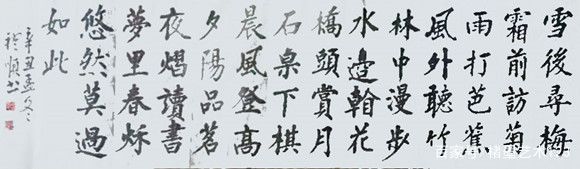 雪後尋梅
霜前訪菊
雨打芭蕉
風外聽竹
林中漫步
水邊翰花
橋頭賞月
石桌下棋
晨風登高
夕陽品茗
夜熠讀書
夢里春穌
悠然莫過
如此
辛丑孟冬
順书
百家号